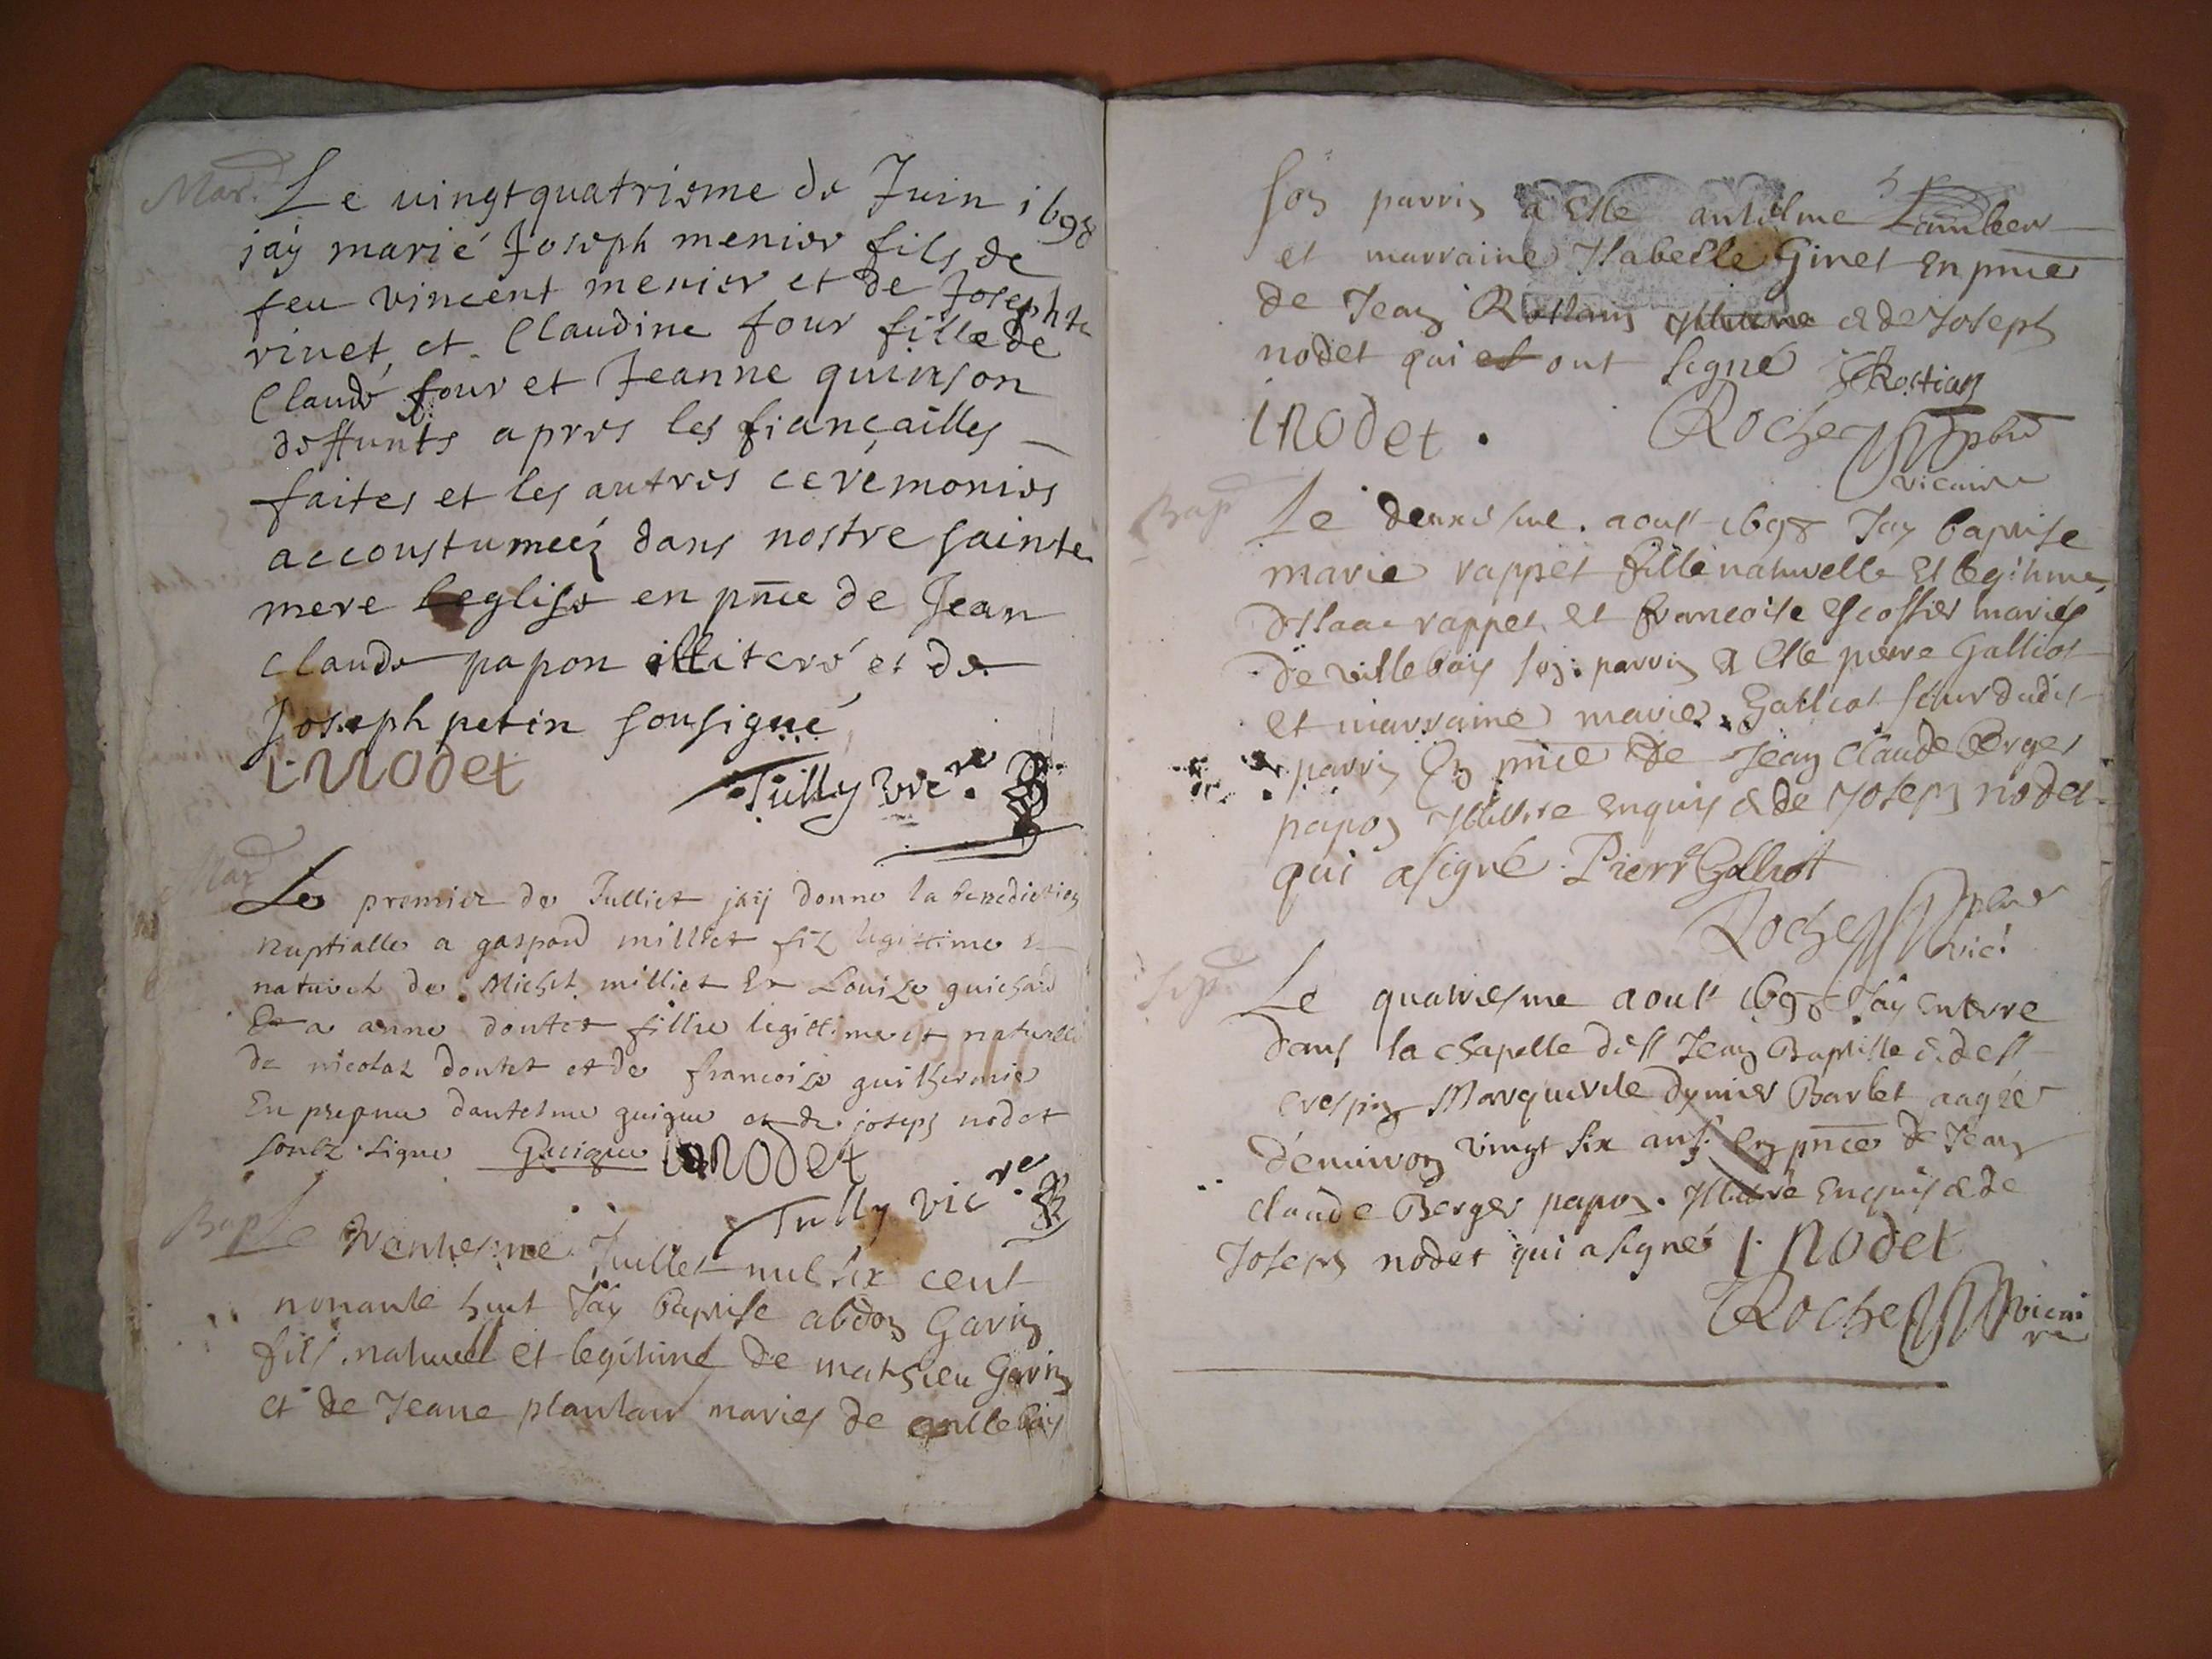 Mar.
Le vingt quatrieme de Juin 1698
jay marié Joseph menier fils de
feu vincent menier et de Josephte
rivet et Claudine four fille de
Claude four et Jeanne quinson
deffunts apres les fiançailles
faites et les autres cerémonies
accoustumeéz dans nostre sainte
mere leglise en pnce de Jean
claude papon illiteré et de
Joseph petin sousigné
i nodet Tully vic.re
Mar
Le premier de Julliet jaij donne la benediction
nuptialle a gaspard milliet filz legittime Et
naturel de Michel milliet Et Louize guichard
Et a anne doutet fillie legittime et naturelle
de nicolaz doutet et de francoise guilhermie
En presence dantelme guigue et de joseph nodet
soubz signe Guigue i nodet
Tully vic.re
Bap
Le trentiesme Juillet mil six cent
nonante huit Jay Baptise abdon Gavin
fils naturel et legitime de mathieu Gavin
et de Jeane plantain maries de villebois
son parrin a Este antelme Lamber
et marraine Isabelle Ginet En pnce
de Jean Rostain illitere & de Joseph
nodet qui et ont signé Rostian
i nodet . Roche pbre
vicaire
Bap
Le deuxiesme . aoust 1698 Jay baptise
marie rappet fille naturelle Et legitime
dIsaac rappet et francoise Escoffier maries
de villebois son parrin a Este pierre Galliot
et marraine marie Galliot seur dudit
parrin En pnce de Jean Claude Berger
papon Illittere enquis & de Joseph nodet
qui a signé Pierre Galliot
Roche pbre
vic!
Sep.
Le quatriesme aoust 1698 Jay enterre
dans la chapelle de st Jean Baptiste & de st
crespin Marguerite dymier Barbet aagée
denuiron vingt six ans En pnce de Jean
claude Berger papon . Illittere Enquis & de
Joseph nodet qui a signé i nodet
Roche vicai
re